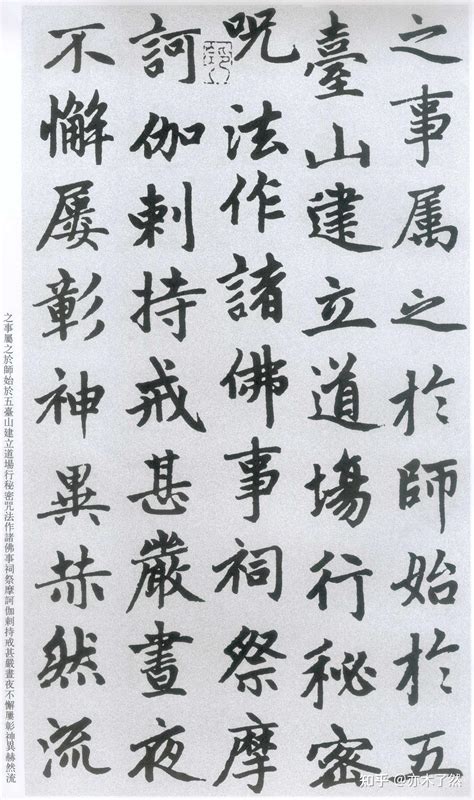 之事属之於師始於五
臺山建立道場行秘密
咒法作諸佛事祠祭摩
訶伽剌持戒甚嚴晝夜
不懈屢彰神異赫然流
之事屬之於師始於五臺山建立道場行秘密咒法作諸佛事祠祭摩訶伽剌持戒甚嚴晝夜不懈屢彰神異赫然流
知乎 @亦木了然